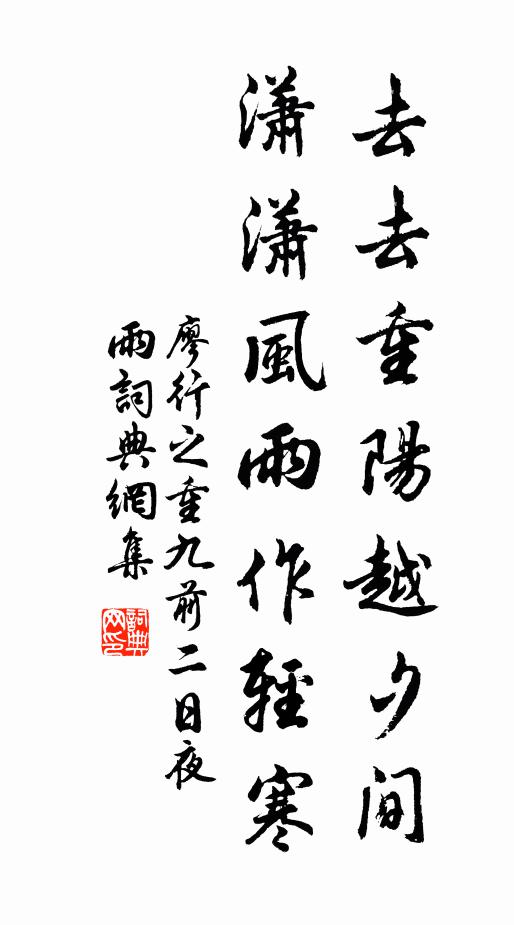 去去重陽越夕間
瀟瀟風雨作輕寒
廖行之重九前二日夜
雨詞典網集
詞典網印